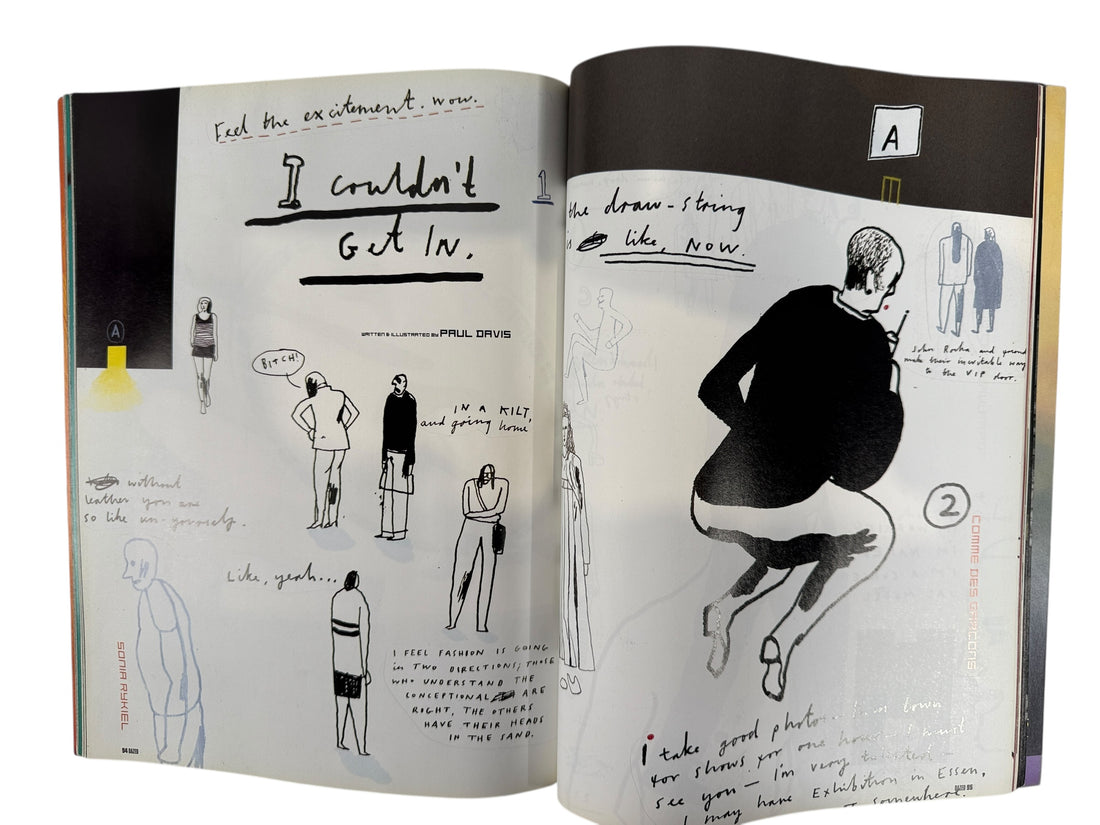 Feel the excitement. wow.
I couldn't
Get IN.
1
WRITTEN & ILLUSTRATED BY PAUL DAVIS
A
BITCH!
IN A KILT,
and going home
without
leather you are
so like un-yourself.
Like, yeah...
I FEEL FASHION IS GOING
in TWO DIRECTIONS; THOSE
WHO UNDERSTAND THE
CONCEPTIONAL ARE
RIGHT, THE OTHERS
HAVE THEIR HEADS
IN THE SAND.
SONIA RYKIEL
94 DAZED
A
the draw-string
is like, NOW.
John Rocha and friend
make their inevitable way
to the VIP door.
2
COMME DES GARCONS
i take good photo
for shows for one hour
see you — I'm very
I may have Exhibition in Essen,
somewhere.
DAZED 95